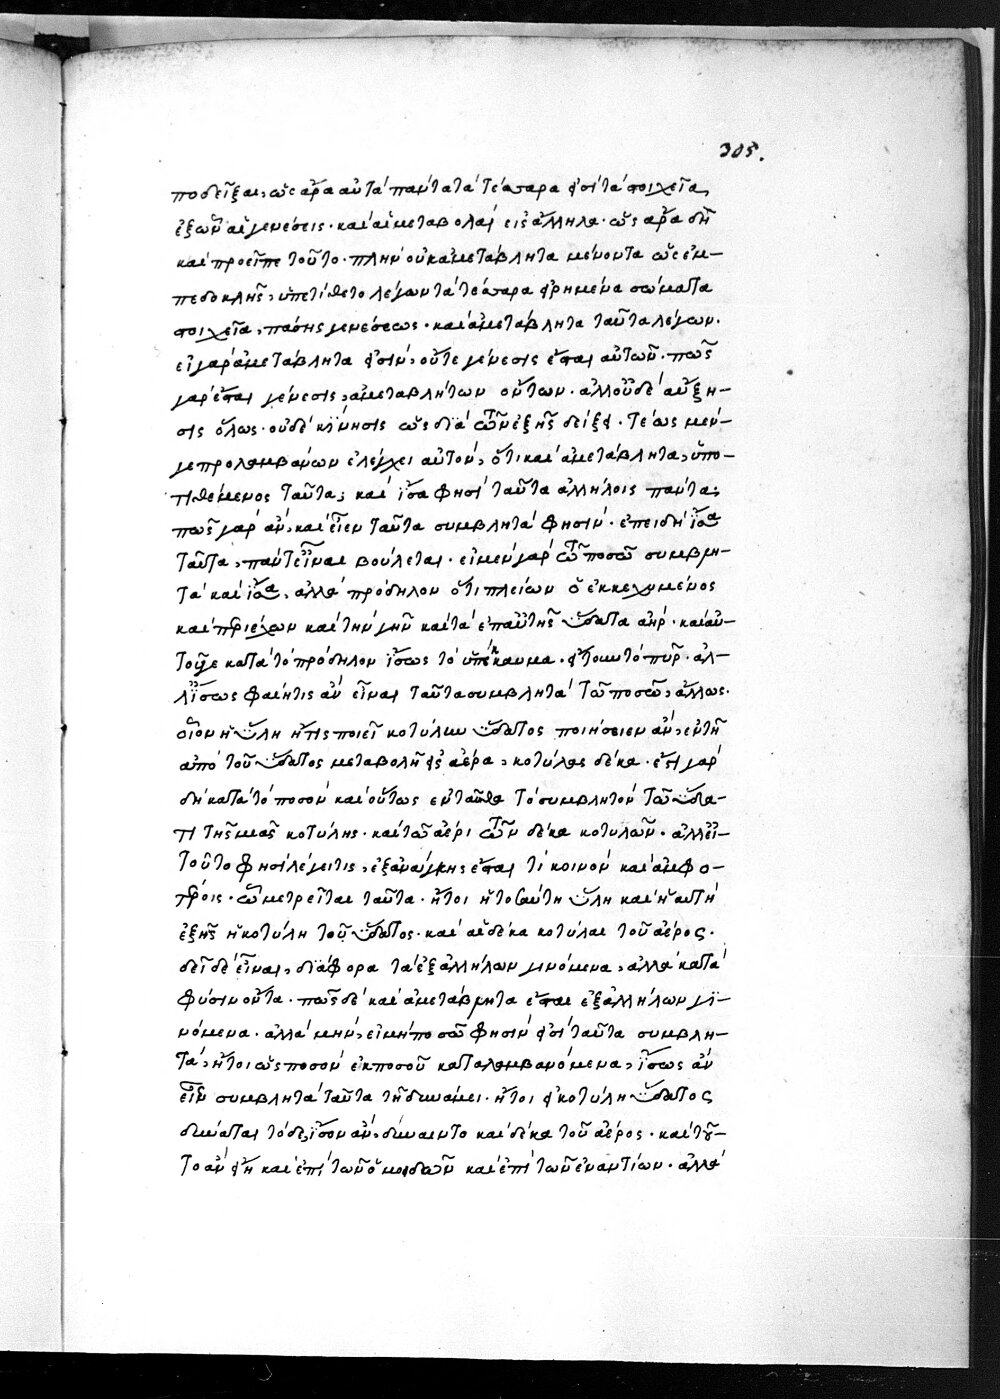 305.
ποδεῖξαι, ὡς ἄρα αὐτὰ πάντα τὰ τέσσαρα εἰσὶ τὰ στοιχεῖα,
ἐξ ὧν αἱ γενέσεις· καὶ αἱ μεταβολαὶ εἰς ἄλληλα· ὡς ἄρα δὴ
καὶ προεῖπε τοῦτο· πλὴν οὐκ ἀμετάβλητα μένοντα ὡς ἐμ-
πεδοκλῆς, ὑπετίθετο λέγων τὰ τέσσαρα εἰρημένα σώματα
στοιχεῖα, πάσης γενέσεως· καὶ ἀμετάβλητα ταῦτα λέγων.
εἰ γὰρ ἀμετάβλητα εἰσὶν, οὔτε γένεσις ἔσται αὐτῶν· πῶς
γὰρ ἔσται γένεσις, ἀμεταβλήτων ὄντων· ἀλλ' οὐδὲ αὔξη-
σις ὅλως· οὐδὲ κίνησις ὡς διὰ τῶν ἑξῆς δείξει· τέως μέν-
γε προλαμβάνων ἐλέγχει αὐτὸν, ὅτι καὶ ἀμετάβλητα, ὑπο-
τιθέμενος ταῦτα, καὶ ἴσα φησὶ ταῦτα ἀλλήλοις πάντα;
πῶς γὰρ ἂν, καὶ εἶεν ταῦτα συμβλητὰ φησίν· ἐπειδὴ ἴσα
ταῦτα, πάντ' εἶναι βούλεται· εἰ μὲν γὰρ τῶ ποσῶ συμβλη-
τὰ καὶ ἴσα, ἀλλὰ πρόδηλον ὅτι πλείων ὁ ἐκκεχυμένος
καὶ περιέχων καὶ τὴν γῆν καὶ τὰ ἐπ' αὐτῆς ὕδατα ἀήρ· καὶ αὐ-
τοῦγε κατὰ τὸ πρόδηλον ἴσως τὸ ὑπέκκαυμα· ἤτοι τὸ πῦρ· ἀλ-
λ' ἴσως φαίη τις ἂν εἶναι ταῦτα συμβλητὰ τῶ ποσῶ, ἄλλως·
οἷον ἡ ὕλη ἥτις ποιεῖ κοτύλην ὕδατος ποιήσειεν ἂν, ἐν τῆ
ἀπὸ τοῦ ὕδατος μεταβολῆ εἰς ἀέρα, κοτύλας δέκα· ἔστι γὰρ
δὴ κατὰ τὸ ποσὸν καὶ οὕτως ἐνταῦθα τὸ συμβλητὸν τῶ ὕδα-
τι τῆς μιᾶς κοτύλης· καὶ τῶ ἀέρι τῶν δέκα κοτυλῶν· ἀλλ' εἰ
τοῦτο φησὶ λέγει τις, ἐξ ἀνάγκης ἔσται τὶ κοινὸν καὶ ἀμφο-
τέροις· ὧ μετρεῖται ταῦτα· ἤτοι ἡ τοιαύτη ὕλη καὶ ἡ αὐτὴ
ἑξῆς ἡ κοτύλη τοῦ ὕδατος· καὶ αἱ δέκα κοτύλαι τοῦ ἀέρος.
δεῖ δὲ εἶναι, διάφορα τὰ ἐξ ἀλλήλων γινόμενα, ἀλλὰ κατὰ
φύσιν ὄντα· πῶς δὲ καὶ ἀμετάβλητα ἔσται ἐξ ἀλλήλων γι-
νόμενα· ἀλλὰ μὴν, εἰ μὴ ποσῶ φησὶν εἰσὶ ταῦτα συμβλη-
τὰ, ἤτοι ὡς ποσὸν ἐκ ποσοῦ καταλαμβανόμενα, ἴσως ἂν
εἶεν συμβλητὰ ταῦτα τῆ δυνάμει· ἤτοι εἰ κοτύλη ὕδατος
δύναται τόδε, ἴσον ἂν, δύναιντο καὶ δέκα τοῦ ἀέρος· καὶ τοῦ-
το ἂν εἴη καὶ ἐπὶ τῶν ὁμοιοειδῶν καὶ ἐπὶ τῶν ἐναντίων· ἀλλὰ